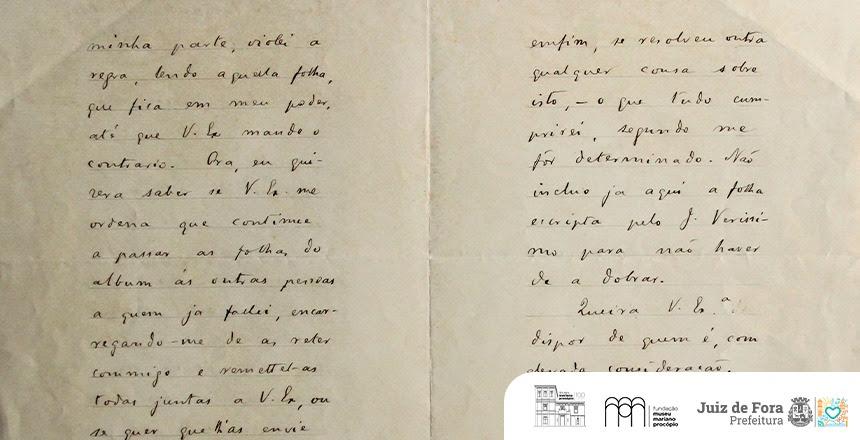 minha parte, violei a
regra, lendo aquella folha,
que fica em meu poder,
até que V. Ex mande o
contrario. Ora, eu qui-
zera saber se V. Ex. me
ordena que continue
a passar as folhas do
album ás outras pessoas
a quem ja fallei, encar-
regando-me de as reter
commigo e remettel-as
todas juntas a V. Ex, ou
se quer que lh'as envie
emfim, se resolveu outra
qualquer cousa sobre
isto, — o que tudo cum-
prirei, segundo me
fôr determinado. Não
incluo ja aqui a folha
escripta pelo J. Verissi-
mo para não haver
de a dobrar.
Queira V. Ex.ª
dispor de quem é, com
elevada consideração,
100
fundação
museu
mariano
procópio
Juiz de Fora
Prefeitura